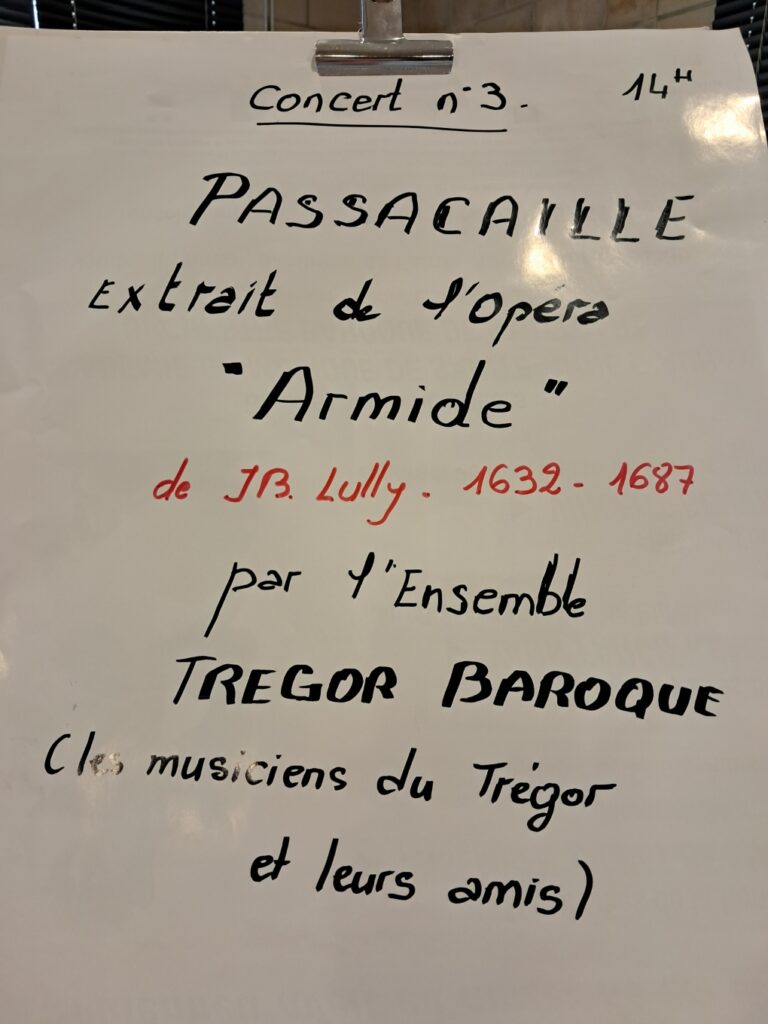 Concert n°3. 14H
PASSACAILLE
Extrait de l'Opéra
"Armide"
de JB. Lully. 1632 - 1687
par l'Ensemble
TREGOR BAROQUE
(les musiciens du Trégor
et leurs amis)